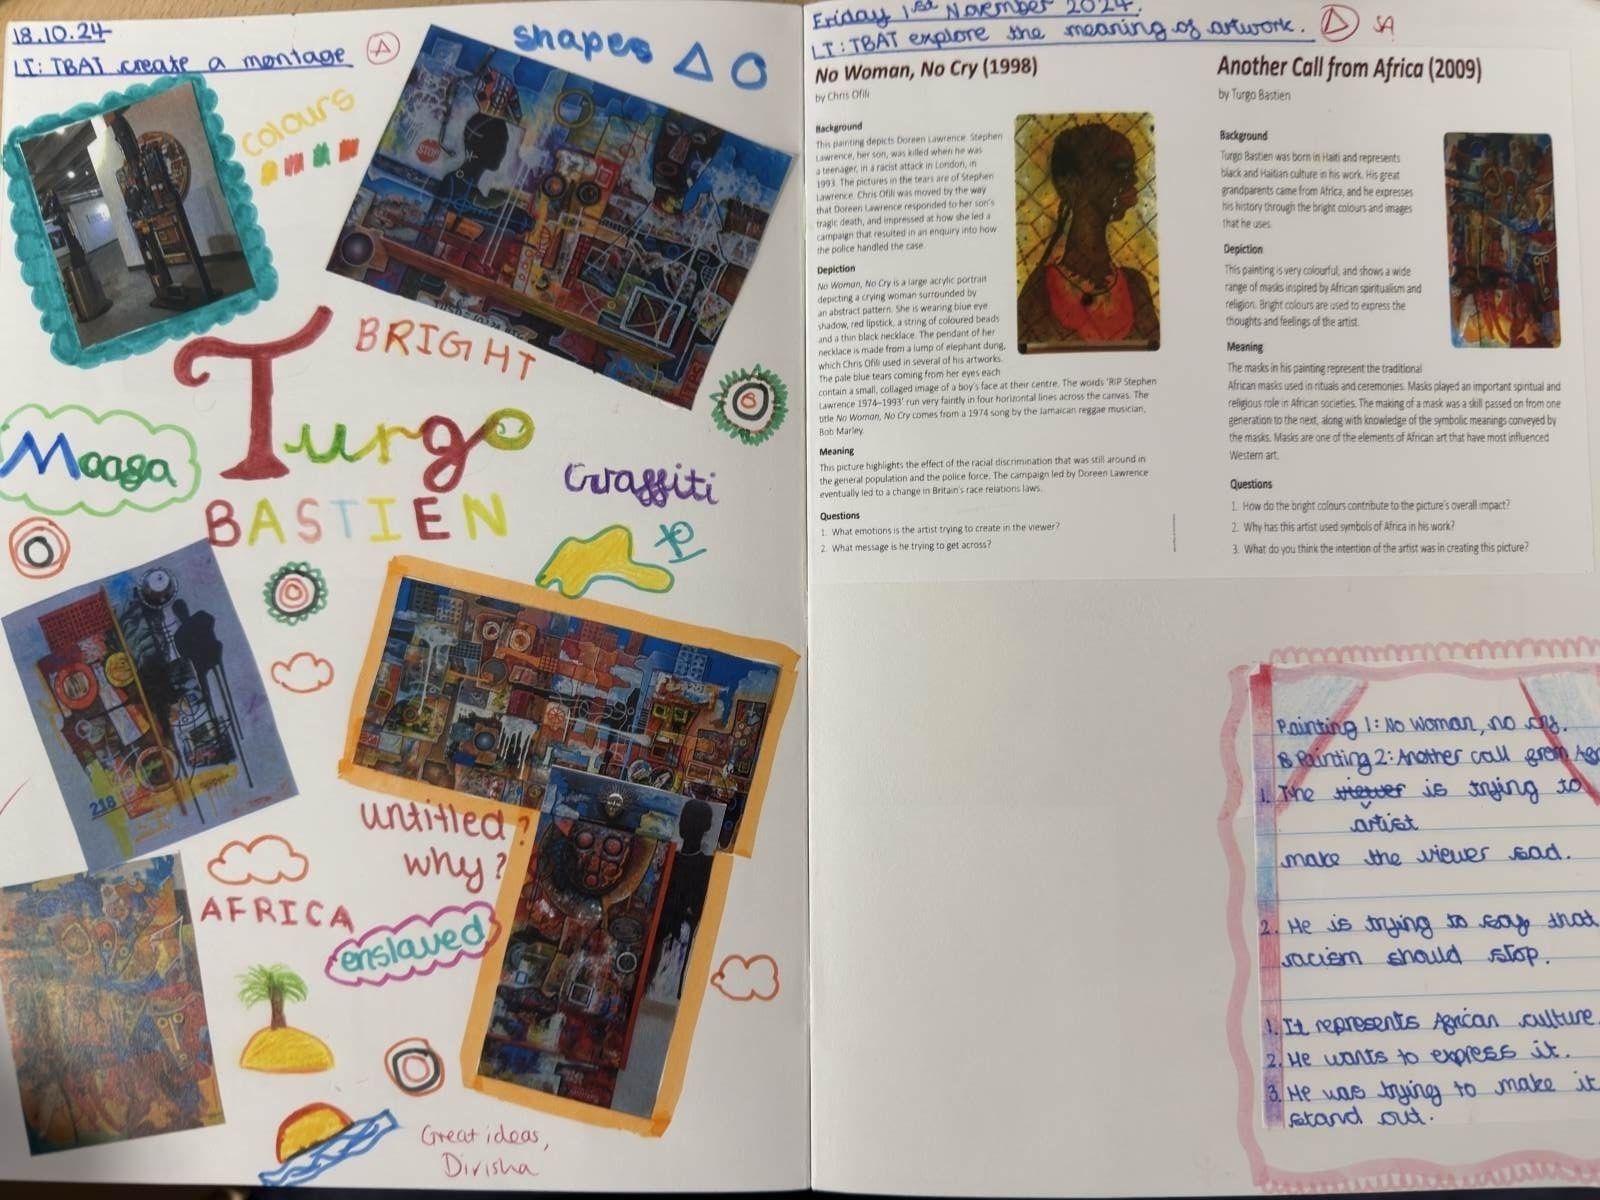 18.10.24
LI: TBAT create a montage
colours
shapes
STOP
BRIGHT
Turgo
BASTIEN
Maaga
Graffiti
218
untitled?
why?
AFRICA
enslaved
Great ideas,
Divisha
Friday 1st November 2024.
LI: TBAT explore the meaning of artwork.
SA
No Woman, No Cry (1998)
by Chris Ofili
Background
This painting depicts Doreen Lawrence. Stephen
Lawrence, her son, was killed when he was
a teenager, in a racist attack in London, in
1993. The pictures in the tears are of Stephen
Lawrence. Chris Ofili was moved by the way
that Doreen Lawrence responded to her son's
tragic death, and impressed at how she led a
campaign that resulted in an enquiry into how
the police handled the case.
Depiction
No Woman, No Cry is a large acrylic portrait
depicting a crying woman surrounded by
an abstract pattern. She is wearing blue eye
shadow, red lipstick, a string of coloured beads
and a thin black necklace. The pendant of her
necklace is made from a lump of elephant dung,
which Chris Ofili used in several of his artworks.
The pale blue tears coming from her eyes each
contain a small, collaged image of a boy's face at their centre. The words 'RIP Stephen
Lawrence 1974–1993' run very faintly in four horizontal lines across the canvas. The
title No Woman, No Cry comes from a 1974 song by the Jamaican reggae musician,
Bob Marley.
Meaning
This picture highlights the effect of the racial discrimination that was still around in
the general population and the police force. The campaign led by Doreen Lawrence
eventually led to a change in Britain's race relations laws.
Questions
1. What emotions is the artist trying to create in the viewer?
2. What message is he trying to get across?
Another Call from Africa (2009)
by Turgo Bastien
Background
Turgo Bastien was born in Haiti and represents
black and Haitian culture in his work. His great
grandparents came from Africa, and he expresses
his history through the bright colours and images
that he uses.
Depiction
This painting is very colourful, and shows a wide
range of masks inspired by African spiritualism and
religion. Bright colours are used to express the
thoughts and feelings of the artist.
Meaning
The masks in his painting represent the traditional
African masks used in rituals and ceremonies. Masks played an important spiritual and
religious role in African societies. The making of a mask was a skill passed on from one
generation to the next, along with knowledge of the symbolic meanings conveyed by
the masks. Masks are one of the elements of African art that have most influenced
Western art.
Questions
1. How do the bright colours contribute to the picture's overall impact?
2. Why has this artist used symbols of Africa in his work?
3. What do you think the intention of the artist was in creating this picture?
Painting 1: No Woman, no cry.
Painting 2: Another call from
1. The viewer is trying to
artist
make the viewer sad.
2. He is trying to say that
racism should stop.
1. It represents African culture.
2. He wants to express it.
3. He was trying to make it
stand out.